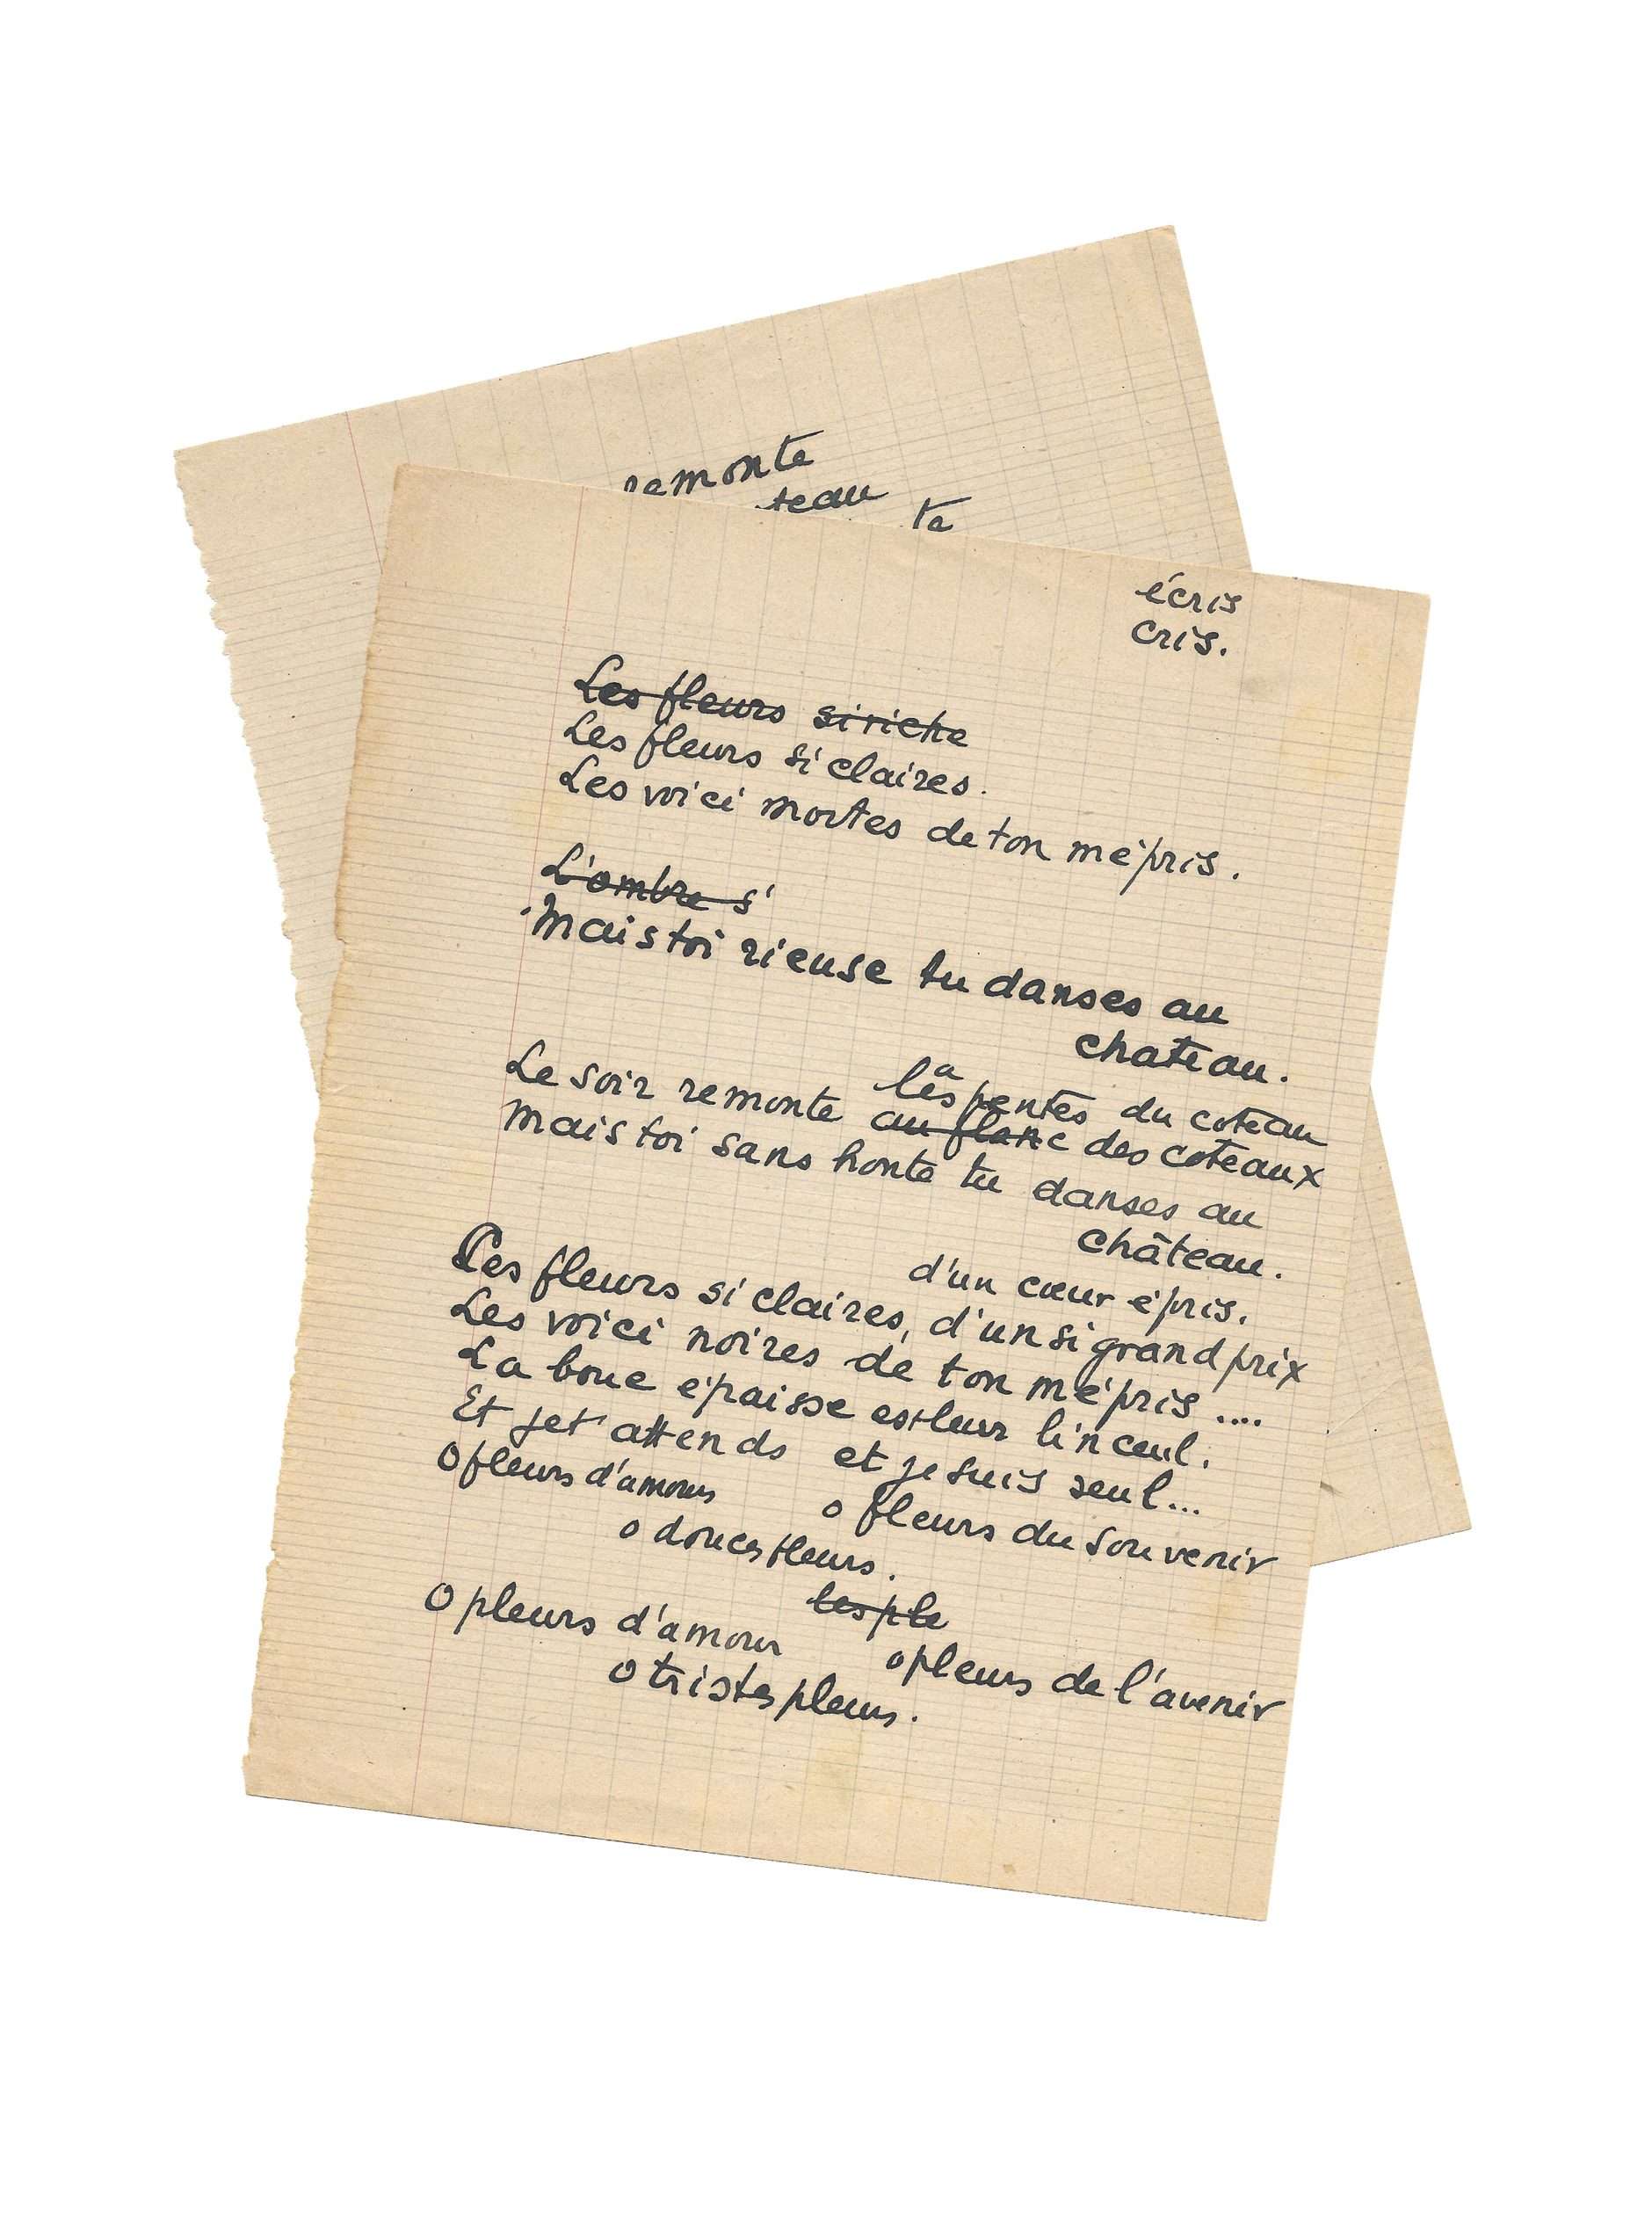 remonte
teau
te
écris
cris.
Les fleurs si riche
Les fleurs si claires.
Les voici mortes de ton mépris.
L'ombre s'
Mais toi rieuse tu danses au
chateau.
a
les pentes du coteau
Le soir remonte au flanc des coteaux
Mais toi sans honte tu danses au
château.
d'un cœur épris.
Les fleurs si claires, d'un si grand prix
Les voici noires de ton mépris ....
La boue épaisse est leur linceul.
Et je t'attends et je suis seul...
O fleurs d'amour o fleurs du souvenir
o douces fleurs.
les ple
O pleurs d'amour o pleurs de l'avenir
O tristes pleurs.